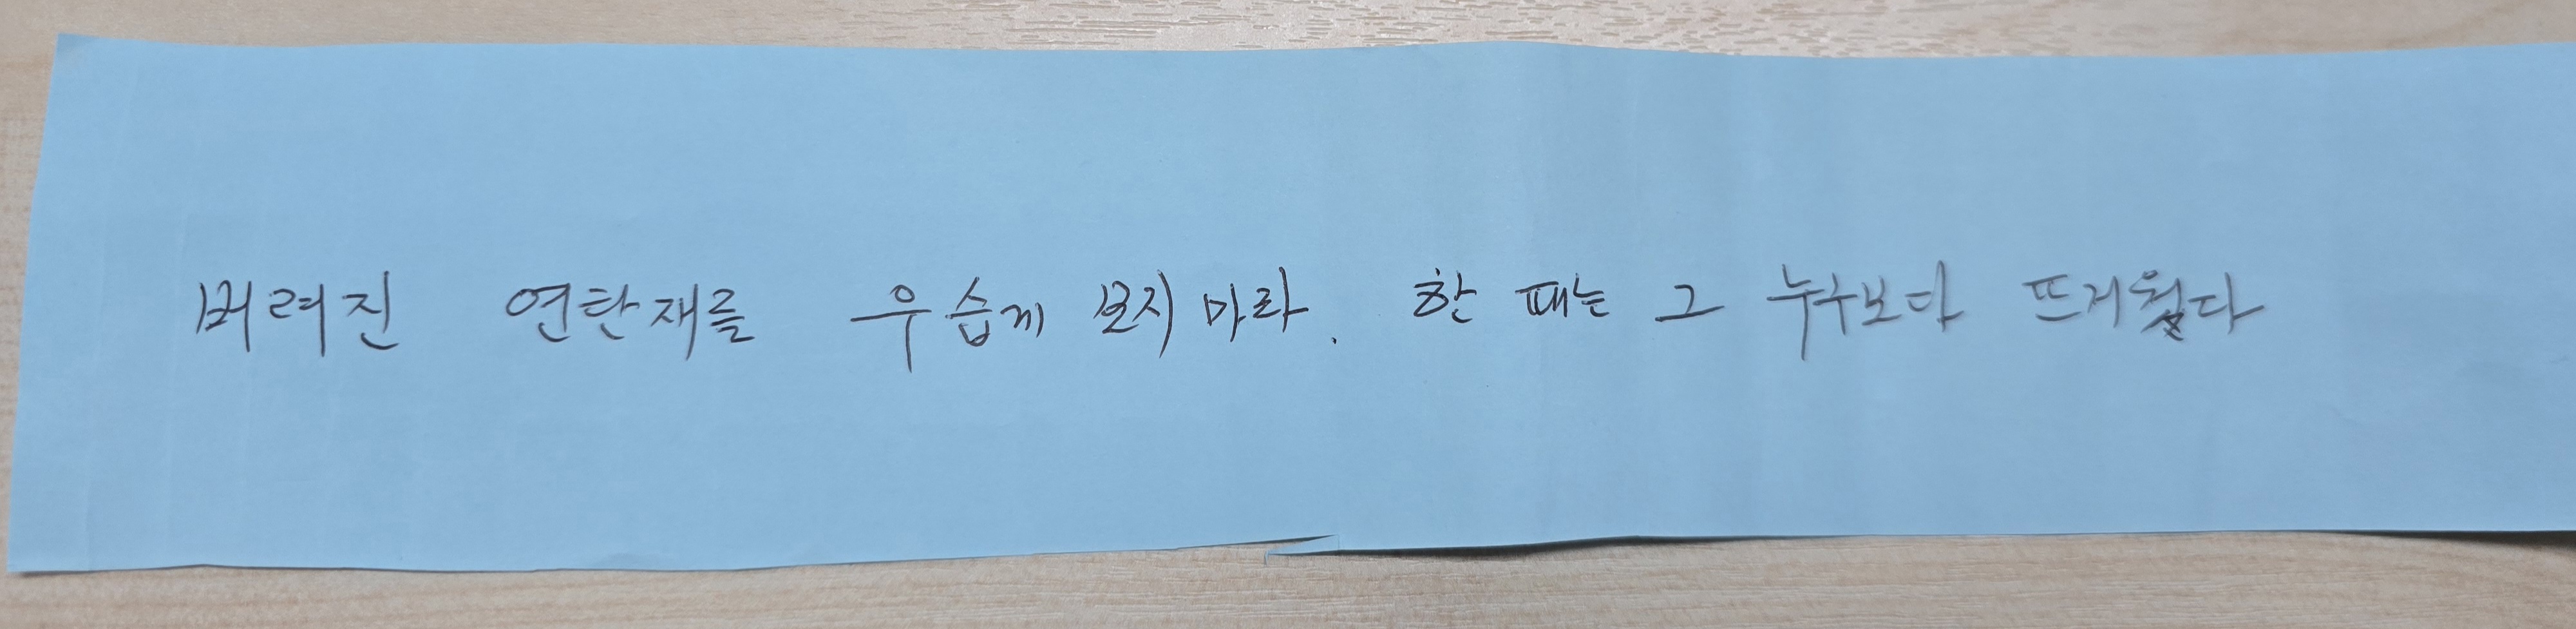 버려진 연탄재를 우습게 보지 마라. 한 때는 그 누구보다 뜨거웠다